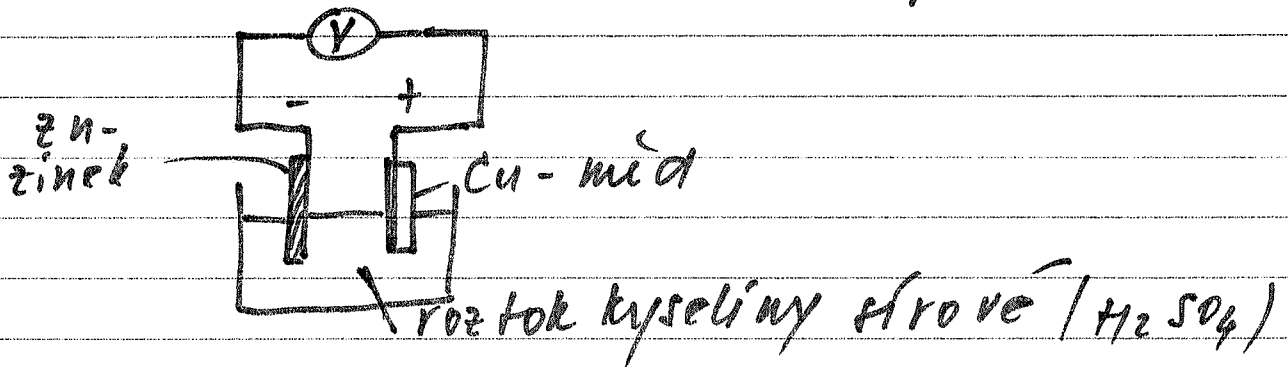 V
- +
Zn-
zinek
Cu - měd
roztok kyseliny sírové (H2SO4)